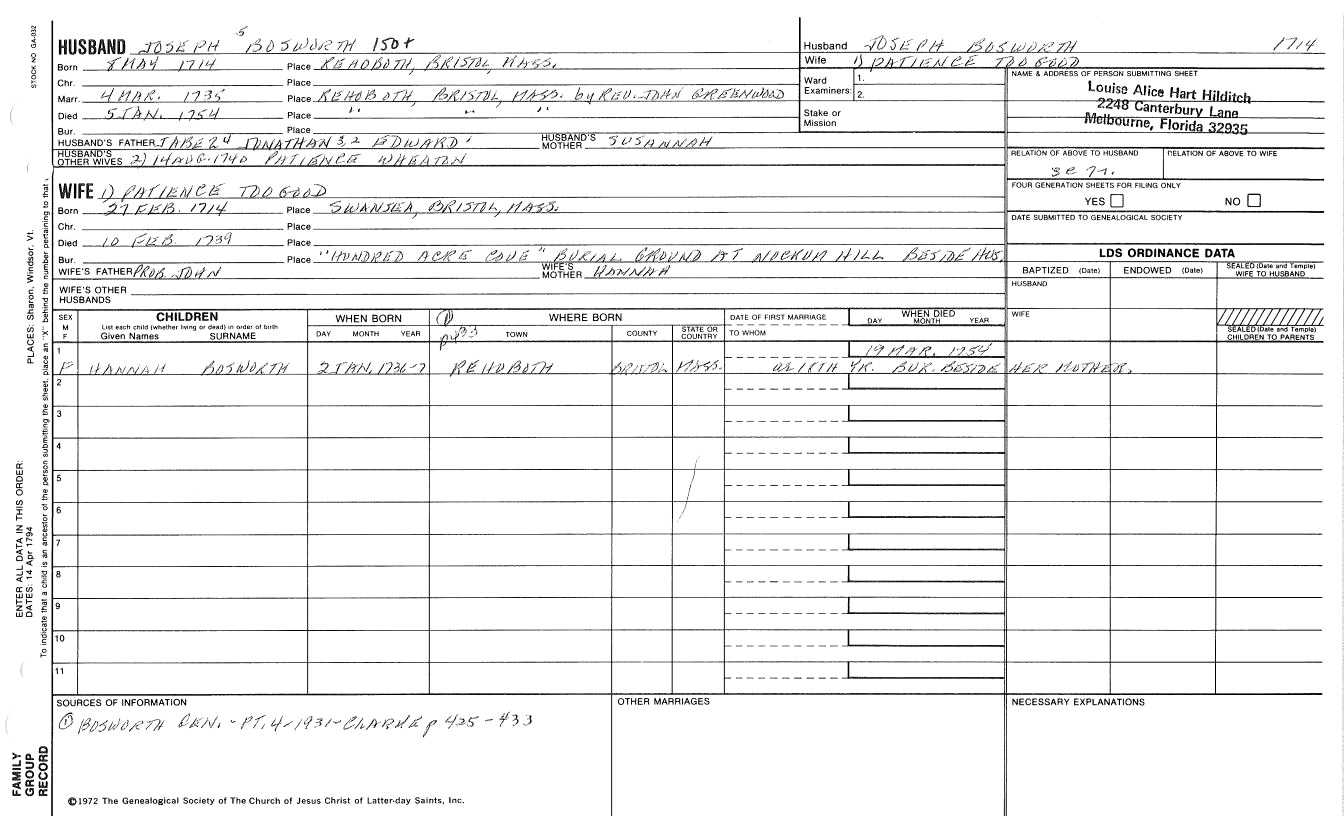 STOCK NO GA-932
HUSBAND JOSEPH 5 BOSWORTH 150+
Born 8 MAY 1714 Place REHOBOTH, BRISTOL, MASS.
Chr. Place
Marr. 4 MAR. 1735 Place REHOBOTH, BRISTOL, MASS. by REV. JOHN GREENWOOD
Died 5 JAN. 1754 Place " " "
Bur. Place
HUSBAND'S FATHER JABEZ 4 JONATHAN 3,2 EDWARD 1 HUSBAND'S MOTHER SUSANNAH
HUSBAND'S OTHER WIVES 2) 14 AUG. 1740 PATIENCE WHEATON
Husband JOSEPH BOSWORTH 1714
Wife 1) PATIENCE TOOGOOD
Ward Examiners: 1.
2.
Stake or Mission
NAME & ADDRESS OF PERSON SUBMITTING SHEET
Louise Alice Hart Hilditch
2248 Canterbury Lane
Melbourne, Florida 32935
RELATION OF ABOVE TO HUSBAND RELATION OF ABOVE TO WIFE
FOUR GENERATION SHEETS FOR FILING ONLY
YES NO
DATE SUBMITTED TO GENEALOGICAL SOCIETY
WIFE 1) PATIENCE TOOGOOD
Born 27 FEB. 1714 Place SWANSEA, BRISTOL, MASS.
Chr. Place
Died 10 FEB. 1739 Place
Bur. Place "HUNDRED ACRE COVE" BURIAL GROUND AT NOCKUM HILL BESIDE HUS.
WIFE'S FATHER PROB. JOHN WIFE'S MOTHER HANNAH
WIFE'S OTHER HUSBANDS
LDS ORDINANCE DATA
BAPTIZED (Date) ENDOWED (Date) SEALED (Date and Temple) WIFE TO HUSBAND
HUSBAND
WIFE
SEALED (Date and Temple) CHILDREN TO PARENTS
SEX M F CHILDREN List each child (whether living or dead) in order of birth Given Names SURNAME
WHEN BORN DAY MONTH YEAR
① p433 WHERE BORN TOWN COUNTY STATE OR COUNTRY
DATE OF FIRST MARRIAGE TO WHOM
WHEN DIED DAY MONTH YEAR
1 19 MAR. 1754
F HANNAH BOSWORTH 2 JAN. 1736-7 REHOBOTH BRISTOL MASS. 18TH YR. BUR. BESIDE HER MOTHER.
2
3
4
5
6
7
8
9
10
11
SOURCES OF INFORMATION
① BOSWORTH GEN. - PT. 4 - 1931 - CLARKE p 425 - 433
OTHER MARRIAGES
NECESSARY EXPLANATIONS
©1972 The Genealogical Society of The Church of Jesus Christ of Latter-day Saints, Inc.
FAMILY GROUP RECORD
ENTER ALL DATA IN THIS ORDER:
DATES: 14 Apr 1794
PLACES: Sharon, Windsor, Vt.
To indicate that a child is an ancestor of the person submitting the sheet, place an "X" behind the number pertaining to that